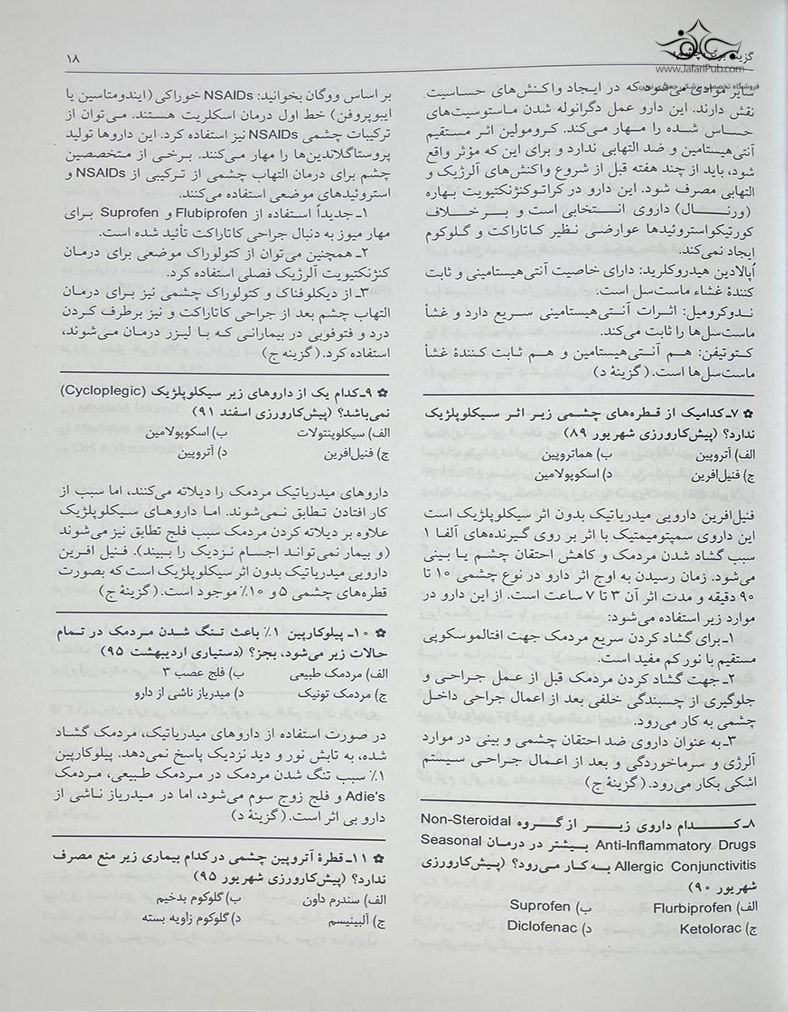 گزینه برتر چشم
۱۸
www.JafariPub.com
فروشگاه تخصصی پزشکی جعفری نوین
سایر موادی می‌شود که در ایجاد واکنش‌های حساسیت
نقش دارند. این دارو عمل دگرانوله شدن ماستوسیت‌های
حساس شده را مهار می‌کند. کرومولین اثر مستقیم
آنتی‌هیستامین و ضد التهابی ندارد و برای این که مؤثر واقع
شود، باید از چند هفته قبل از شروع واکنش‌های آلرژیک و
التهابی مصرف شود. این دارو در کراتوکنژنکتیویت بهاره
(ورنال) داروی انتخابی است و برخلاف
کورتیکواستروئیدها عوارضی نظیر کاتاراکت و گلوکوم
ایجاد نمی‌کند.
اُپالادین هیدروکلرید: دارای خاصیت آنتی‌هیستامینی و ثابت
کنندهٔ غشاء ماست‌سل است.
ندوکرومیل: اثرات آنتی‌هیستامینی سریع دارد و غشأ
ماست‌سل‌ها را ثابت می‌کند.
کتوتیفن: هم آنتی‌هیستامین و هم ثابت کنندهٔ غشأ
ماست‌سل‌ها است. (گزینهٔ د)
✿ ۷ـ کدامیک از قطره‌های چشمی زیر اثر سیکلوپلژیک
ندارد؟ (پیش‌کارورزی شهریور ۸۹)
الف) آتروپین ب) هماتروپین
ج) فنیل‌افرین د) اسکوپولامین
فنیل‌افرین دارویی میدریاتیک بدون اثر سیکلوپلژیک است
این داروی سمپتومیمتیک با اثر بر روی گیرنده‌های آلفا ۱
سبب گشاد شدن مردمک و کاهش احتقان چشم یا بینی
می‌شود. زمان رسیدن به اوج اثر دارو در نوع چشمی ۱۰ تا
۹۰ دقیقه و مدت اثر آن ۳ تا ۷ ساعت است. از این دارو در
موارد زیر استفاده می‌شود:
۱ـ برای گشاد کردن سریع مردمک جهت افتالموسکوپی
مستقیم با نور کم مفید است.
۲ـ جهت گشاد کردن مردمک قبل از عمل جراحی و
جلوگیری از چسبندگی خلفی بعد از اعمال جراحی داخل
چشمی به کار می‌رود.
۳ـ به عنوان داروی ضد احتقان چشمی و بینی در موارد
آلرژی و سرماخوردگی و بعد از اعمال جراحی سیستم
اشکی بکار می‌رود. (گزینهٔ ج)
۸ـ کدام داروی زیر از گروه Non-Steroidal
Anti-Inflammatory Drugs بیشتر در درمان Seasonal
Allergic Conjunctivitis به کار می‌رود؟ (پیش‌کارورزی
شهریور ۹۰)
الف) Flurbiprofen ب) Suprofen
ج) Ketolorac د) Diclofenac
بر اساس ووگان بخوانید: NSAIDs خوراکی (ایندومتاسین یا
ایبوپروفن) خط اول درمان اسکلریت هستند. می‌توان از
ترکیبات چشمی NSAIDs نیز استفاده کرد. این داروها تولید
پروستاگلاندین‌ها را مهار می‌کنند. برخی از متخصصین
چشم برای درمان التهاب چشمی از ترکیبی از NSAIDs و
استروئیدهای موضعی استفاده می‌کنند.
۱ـ جدیداً استفاده از Flubiprofen و Suprofen برای
مهار میوز به دنبال جراحی کاتاراکت تأئید شده است.
۲ـ همچنین می‌توان از کتولوراک موضعی برای درمان
کنژنکتیویت آلرژیک فصلی استفاده کرد.
۳ـ از دیکلوفناک و کتولوراک چشمی نیز برای درمان
التهاب چشم بعد از جراحی کاتاراکت و نیز برطرف کردن
درد و فتوفوبی در بیمارانی که با لیزر درمان می‌شوند،
استفاده کرد. (گزینه ج)
✿ ۹ـ کدام یک از داروهای زیر سیکلوپلژیک (Cycloplegic)
نمی‌باشد؟ (پیش‌کارورزی اسفند ۹۱)
الف) سیکلوپنتولات ب) اسکوپولامین
ج) فنیل‌افرین د) آتروپین
داروهای میدریاتیک مردمک را دیلاته می‌کنند، اما سبب از
کار افتادن تطابق نمی‌شوند. اما داروهای سیکلوپلژیک
علاوه بر دیلاته کردن مردمک سبب فلج تطابق نیز می‌شوند
(و بیمار نمی‌تواند اجسام نزدیک را ببیند). فنیل افرین
دارویی میدریاتیک بدون اثر سیکلوپلژیک است که بصورت
قطره‌های چشمی ۵ و ۱۰٪ موجود است. (گزینهٔ ج)
✿ ۱۰ـ پیلوکارپین ۱٪ باعث تنگ شدن مردمک در تمام
حالات زیر می‌شود، بجز؟ (دستیاری اردیبهشت ۹۵)
الف) مردمک طبیعی ب) فلج عصب ۳
ج) مردمک تونیک د) میدریاز ناشی از دارو
در صورت استفاده از داروهای میدریاتیک، مردمک گشاد
شده، به تابش نور و دید نزدیک پاسخ نمی‌دهد. پیلوکارپین
۱٪ سبب تنگ شدن مردمک در مردمک طبیعی، مردمک
Adie's و فلج زوج سوم می‌شود، اما در میدریاز ناشی از
دارو بی اثر است. (گزینهٔ د)
✿ ۱۱ـ قطرهٔ آتروپین چشمی در کدام بیماری زیر منع مصرف
ندارد؟ (پیش‌کارورزی شهریور ۹۵)
الف) سندرم داون ب) گلوکوم بدخیم
ج) آلبینیسم د) گلوکوم زاویه بسته